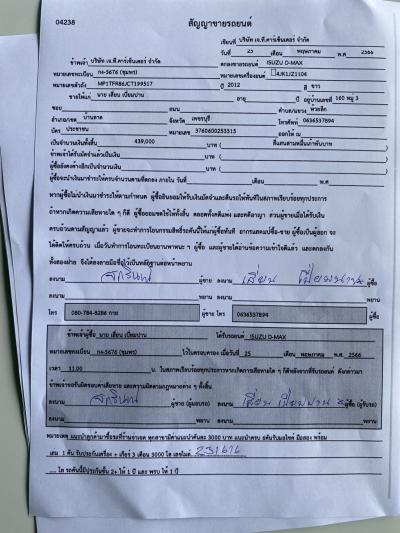 04238
สัญญาขายรถยนต์
เขียนที่ บริษัท เจ.ที.คาร์เซ็นเตอร์ จำกัด
วันที่ 25 เดือน พฤษภาคม พ.ศ 2566
ข้าพเจ้า บริษัท เจ.ที.คาร์เซ็นเตอร์ จำกัด ตกลงขายรถยนต์ ISUZU D-MAX
หมายเลขทะเบียน กง-5676 (ชุมพร) หมายเลขเครื่องยนต์ 4JK1JZ1104
หมายเลขตัวถัง MP1TFR86JCT199517 ปี 2012 สี ขาว
ขายให้แก่ นาย เสียน เปี่ยมปาน อายุ ปี อยู่บ้านเลขที่ 160 หมู่ 3
ซอย ถนน ตำบล/แขวง ห้วยลึก
อำเภอ/เขต บ้านลาด จังหวัด เพชรบุรี โทรศัพท์ 0636537894
บัตร ประชาชน หมายเลข 3760600253315 ออกให้ ณ
เป็นจำนวนเงินทั้งสิ้น 439,000 บาท ( สี่แสนสามหมื่นเก้าพันบาท
ข้าพเจ้าได้รับมัดจำแล้วเป็นเงิน บาท (
ผู้ซื้อยังคงค้างอีกเป็นจำนวนเงิน บาท (
ผู้ซื้อจะนำเงินมาชำระให้ครบจำนวนตามที่ตกลง ภายใน วันที่ เดือน พ.ศ
หากผู้ซื้อไม่นำเงินมาชำระให้ตามกำหนด ผู้ซื้อยินยอมให้ริบเงินมัดจำและคืนรถให้ทันทีในสภาพเรียบร้อยทุกประการ
ถ้าหากเกิดความเสียหายใด ๆ ก็ดี ผู้ซื้อยอมชดใช้ให้ทั้งสิ้น ตลอดทั้งคดีแพ่ง และคดีอาญา ส่วนผู้ขายเมื่อได้รับเงิน
ครบถ้วนตามสัญญาแล้ว ผู้ขายจะทำการโอนกรรมสิทธิ์รถคันนี้ให้แก่ผู้ซื้อทันที
ได้ติดให้ครบถ้วน เมื่อวันทำการโอนทะเบียนยานพาหนะ ฯ ผู้ซื้อ และผู้ขายได้อ่านข้อความเข้าใจดีแล้ว และตกลงกัน
ทั้งสองฝ่าย จึงได้ลงลายมือชื่อไว้เป็นหลักฐานต่อหน้าพยาน
ลงนาม ผู้ขาย ลงนาม เสียน เปี่ยมปาน ผู้ซื้อ
ลงนาม พยาน ลงนาม พยาน
โทร 080-784-8286 กาย ผู้ขาย โทร 0636537894 ผู้ซื้อ
ข้าพเจ้าผู้ซื้อ นาย เสียน เปี่ยมปาน ได้รับรถยนต์ ISUZU D-MAX
หมายเลขทะเบียน กง-5676 (ชุมพร) ไว้ในครอบครอง เมื่อวันที่ 25 เดือน พฤษภาคม พ.ศ 2566
เวลา 11.00 น. ในสภาพเรียบร้อยทุกประการหากเกิดการเสียหายใด ๆ ก็ดีหลังจากที่รับรถยนต์ ดังกล่าวมา
ข้าพเจ้าขอรับผิดชอบค่าเสียหาย และความผิดตามกฎหมายต่าง ๆ ทั้งสิ้น
ลงนาม ผู้ขาย (ผู้มอบรถ) ลงนาม เสียน เปี่ยมปาน ผู้ซื้อ (ผู้รับรถ)
ลงนาม พยาน ลงนาม พยาน
หมายเหตุ แนะนำลูกค้ามาซื้อรถที่ร้านจ่ายจด ทุกสาขามีค่าแนะนำคันละ 3000 บาท
1 คัน รับประกันเครื่อง + เกียร์ 3 เดือน 3000 โล เลขไมล์
โล รถคันนี้มีประกันชั้น 2+ ให้ 1 ปี และ พรบ ให้ 1 ปี